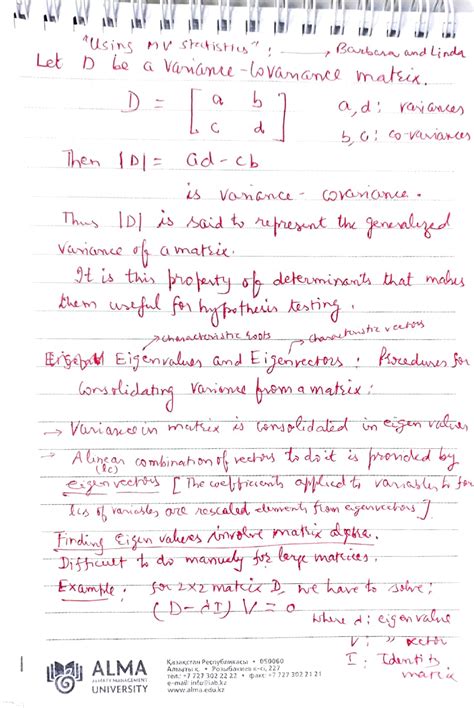 "Using MV Statistics" : → Barbara and Linda
Let D be a variance-covariance matrix.
D = [ a b
c d ]
a, d : variances
b, c : co-variances
Then |D| = ad - cb
is variance - covariance.
Thus |D| is said to represent the generalized
variance of a matrix.
It is this property of determinants that makes
them useful for hypothesis testing.
characteristic roots
characteristic vectors
Eigenvalues and Eigenvectors : Procedures for
consolidating variance from a matrix:
→ Variance in matrix is consolidated in eigen values
→ A linear combination of vectors to do it is provided by
(lc)
eigenvectors [The coefficients applied to variables to for
lcs of variables are rescaled elements from eigenvectors].
Finding Eigen values involve matrix algbra.
Difficult to do manuely for large matrices.
Example: for 2x2 matrix D, we have to solve:
(D - λI) V = 0
where λ : eigenvalue
V : " vector
I : Identity
matrix
ALMA
ALMATY MANAGEMENT
UNIVERSITY
Қазақстан Республикасы • 050060
Алматы қ. • Розыбакиев к-сі, 227
тел.: +7 727 302 22 22 • факс: +7 727 302 21 21
e-mail: info@iab.kz
www.alma.edu.kz